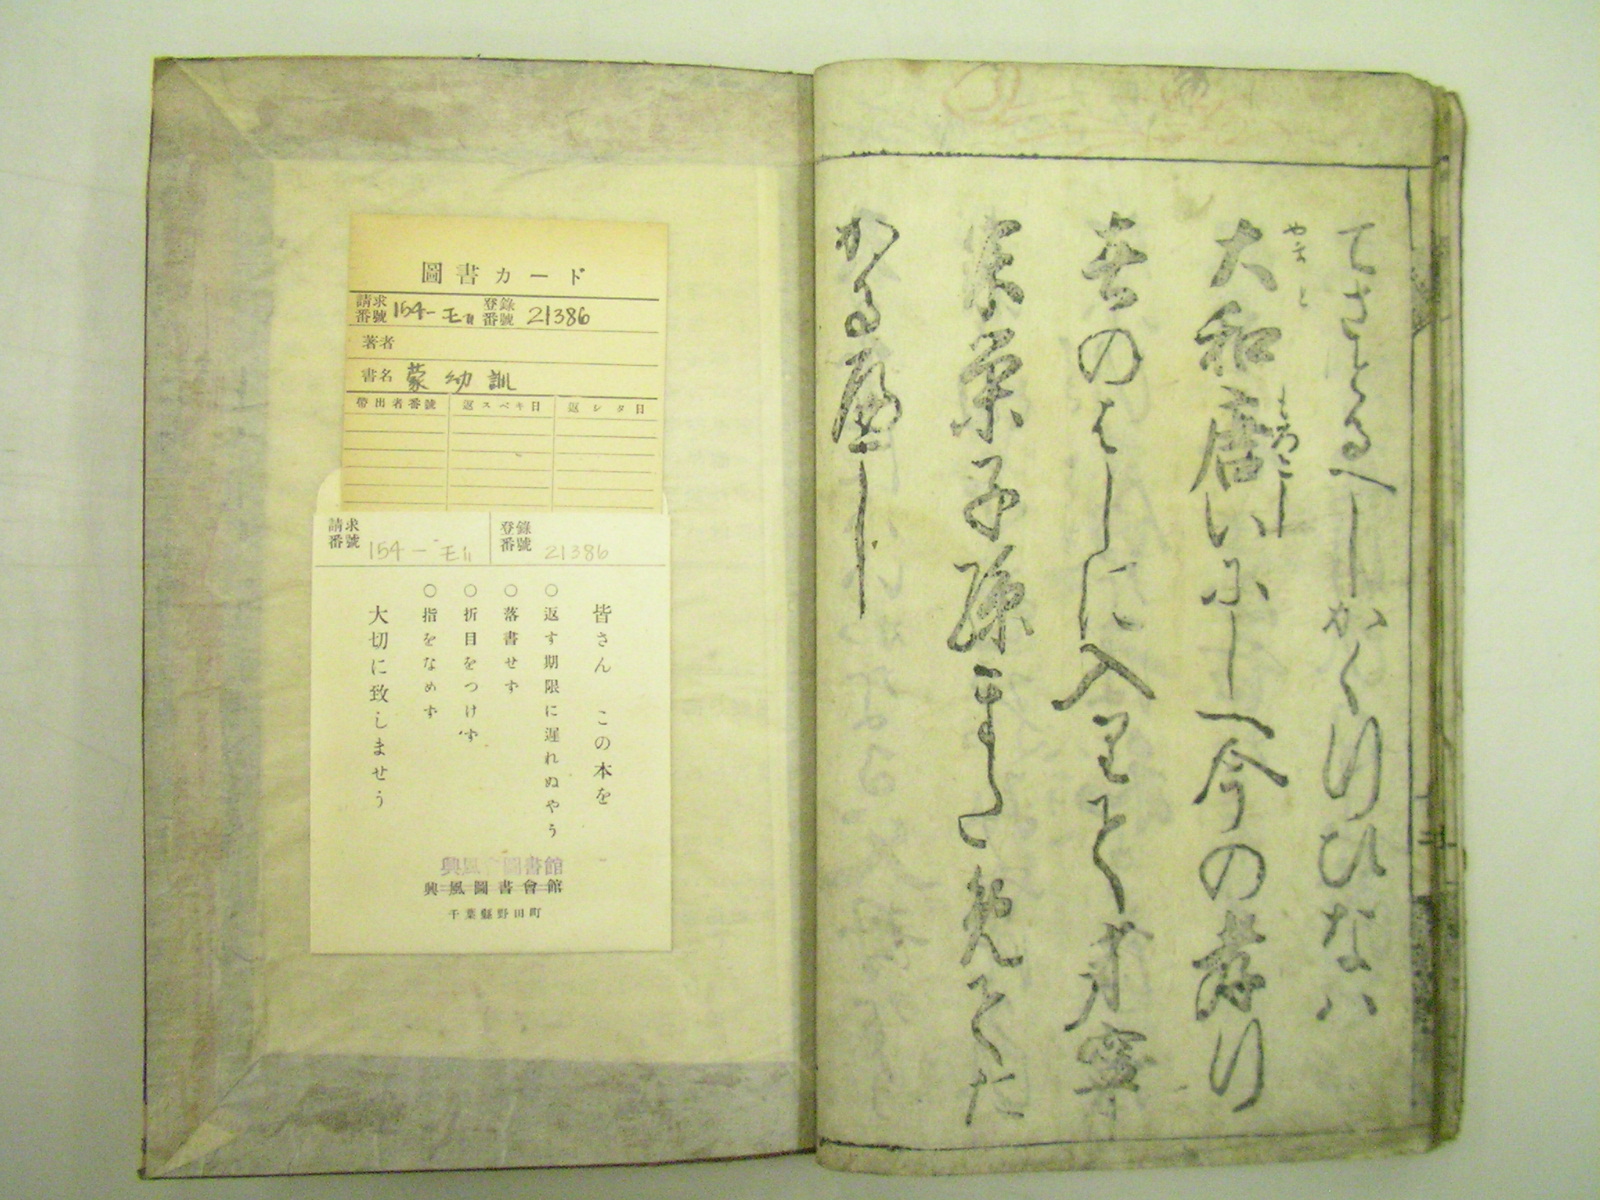 てさとるへしかく行ひなハ
大和唐いにしへ今の孝行
やまと
もろこし
者のはしに入りて身寧
家栄子孫まてめてた
かるへし
圖書カード
請求番號 154-モ11 登錄番號 21386
著者
書名 蒙幼訓
帶出者番號 返スベキ日 返シタ日
請求番號 154-モ11 登錄番號 21386
皆さん この本を
○返す期限に遅れぬやう
○落書せず
○折目をつけず
○指をなめず
大切に致しませう
興風會圖書館
興風圖書會館
千葉縣野田町